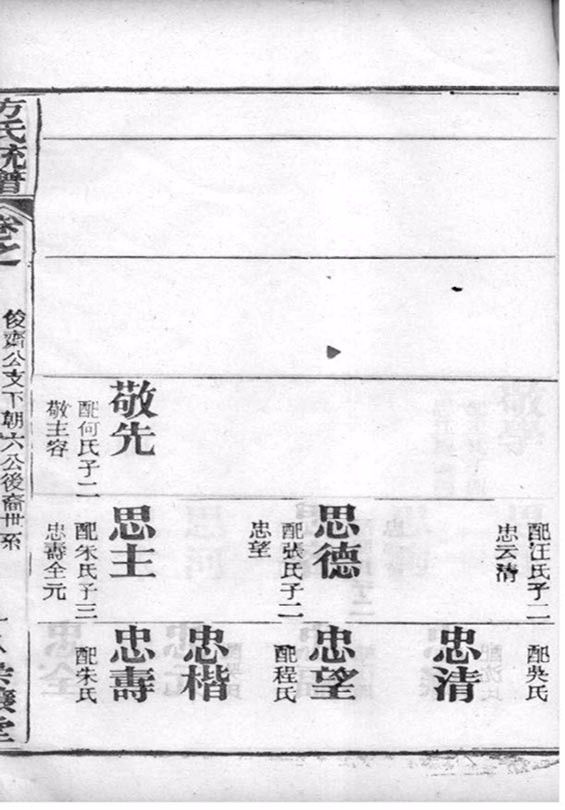 敬先
配何氏子二
敬主容
配汪氏子二
忠云清
思德
配張氏子二
忠望
思主
配朱氏子三
忠壽全元
配吳氏
忠清
忠望
配程氏
忠楷
忠壽
配朱氏
方氏統譜
卷之
俊齋公支下朝六公後裔世系
堂